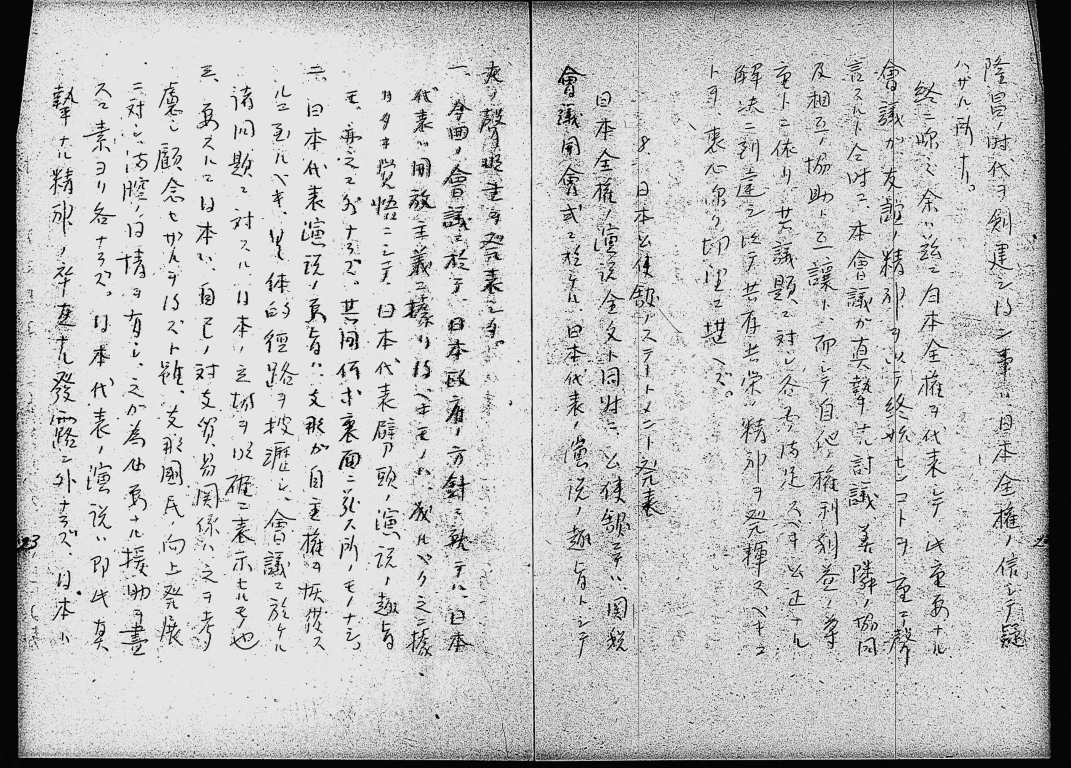 隆昌ノ時代ヲ創建シ得ン事ハ日本全權ノ信シテ疑
ハザル所ナリ。
終ニ臨ミ余ハ茲ニ日本全權ヲ代表シテ此重要ナル
會議ガ友誼ノ精神ヲ以テ終始センコトヲ重テ聲
言スルト仝時ニ本會議ガ真摯ナ討議善隣ノ協同
及相互ノ協助ト互讓ト、而シテ自他ノ權利利益ノ尊
重トニ依リ、其議題ニ対シ各〻満足スベキ公正ナル
解決ニ到達シ以テ共存共栄ノ精神ヲ発揮スヘキコ
トヲ、衷心ヨリ切望ニ堪ヘズ。
8. 日本公使舘ノステートメント発表
日本全權ノ演説全文ト同時ニ公使舘デハ関税
會議開會式ニ於ケル日本代表ノ演説ノ趣旨トシテ
次ノ聲明書ヲ発表シタ。
一、今回ノ會議ニ於テ、日本政府ノ方針ニ就テハ、日本
代表ハ開放主義ニ據リ得ベキモノハ、成ルベク之ニ據
リタキ覚悟ニシテ、日本代表劈頭ノ演説ノ趣旨
モ、亦之ニ外ナラズ。其間何ホ裏面ニ蔵ス所ノモノナシ。
二、日本代表演説ノ要旨ハ、支那ガ自主權ヲ恢復ス
ルニ至ルベキ、具体的徑路ヲ披瀝シ、會議ニ於ケル
諸問題ニ対スル日本ノ立場ヲ明確ニ表示セルモ也
三、要スルニ日本ハ、自己ノ対支貿易関係ハ之ヲ考
慮シ顧念セザルヲ得ズト雖、支那國民ノ向上発展
ニ対シ満腔ノ同情ヲ有シ、之ガ為必要ナル援助ヲ盡
スニ素ヨリ吝ナラズ。日本代表ノ演説ハ即此真
摯ナル精神ノ率直ナル發露ニ外ナラズ、日本ハ
23